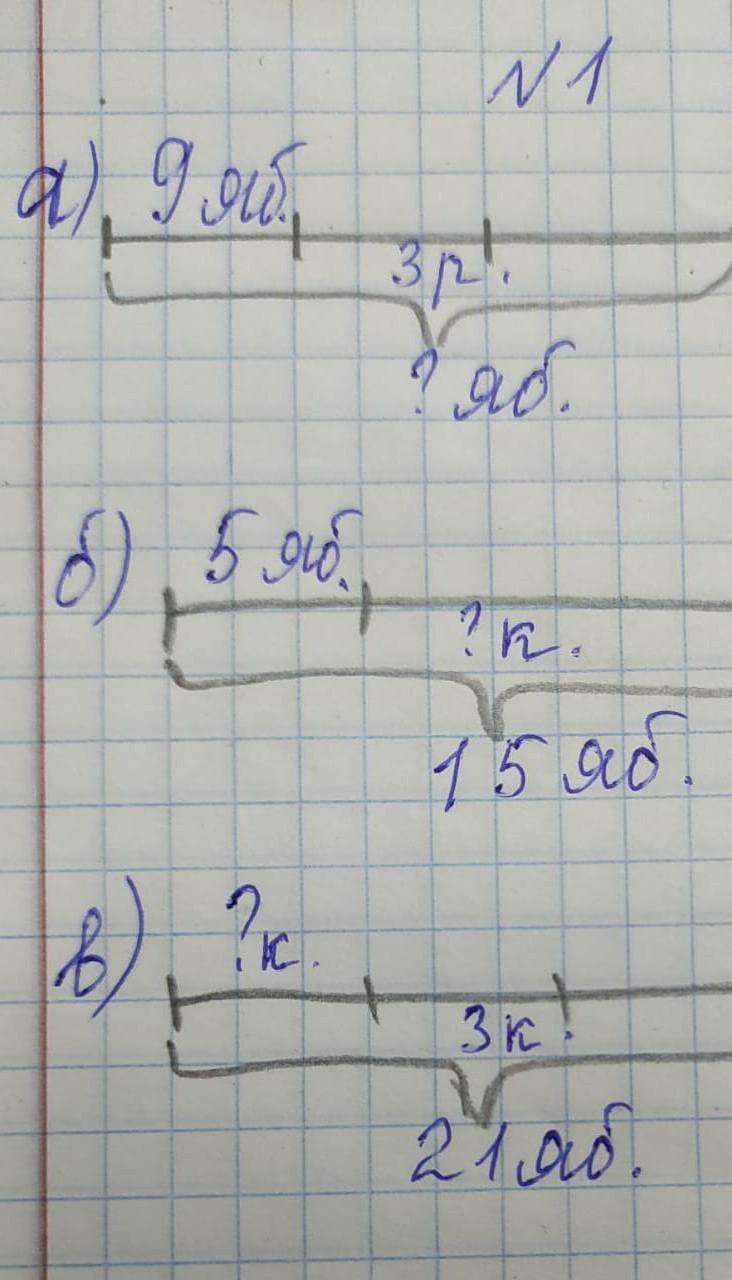 №1
а) 9 яб.
3 р.
? яб.
б) 5 яб.
? к.
15 яб.
в) ? к.
3 к.
21 яб.